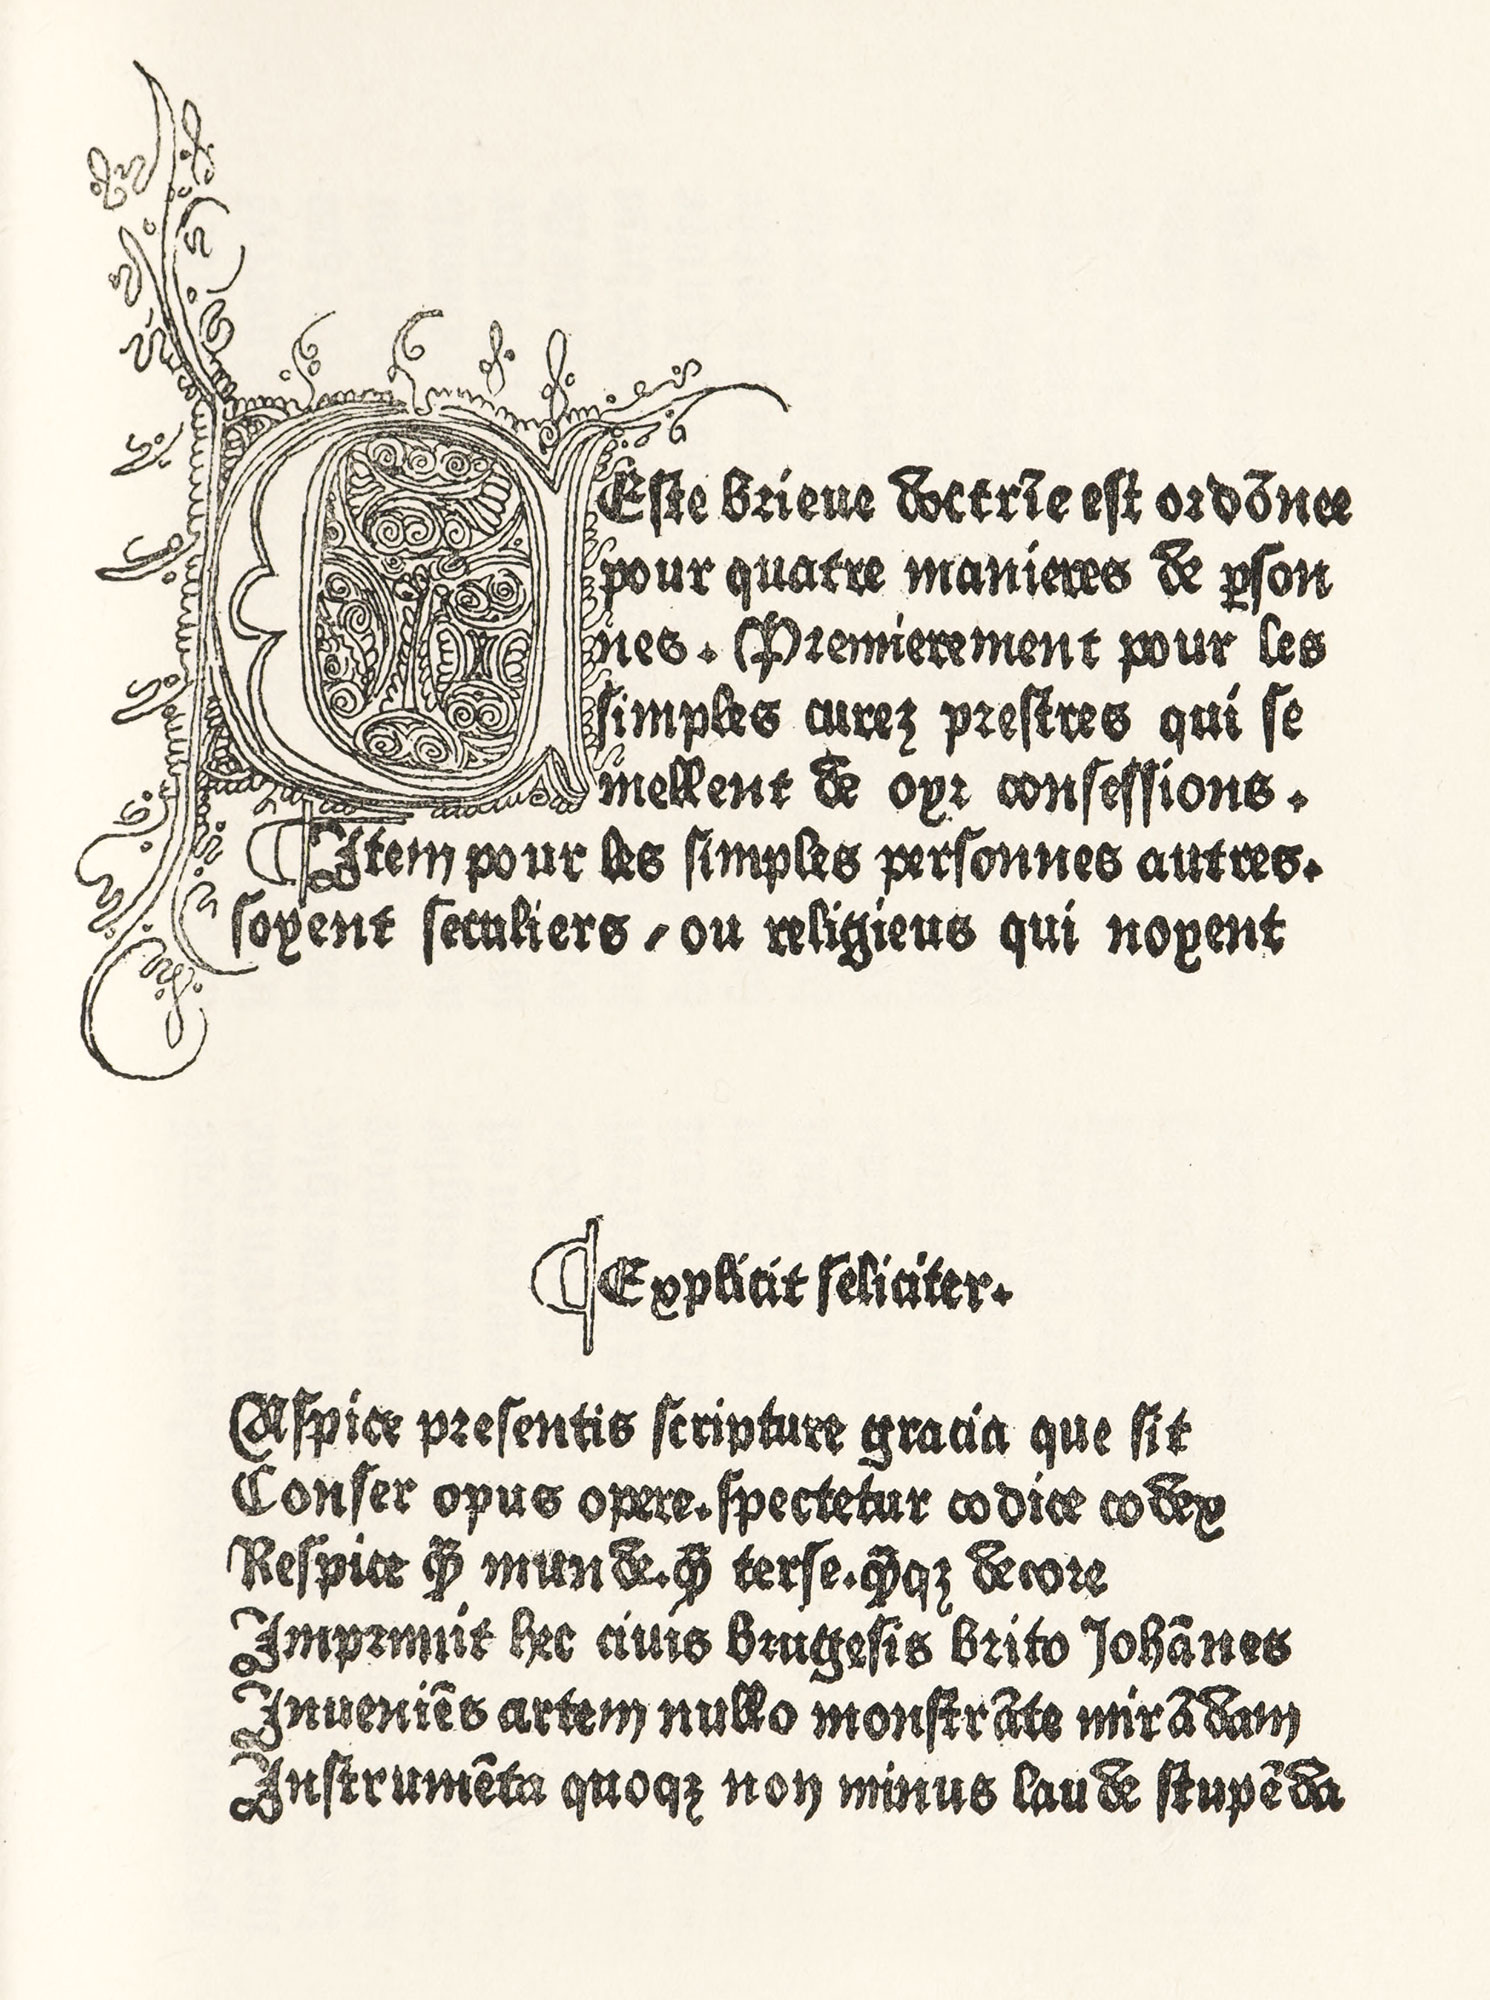 CEste brieue doctrīe est ordōnee
pour quatre manieres de ꝑson
nes. Premierement pour les
simples curez prestres qui se
mellent de oyr confessions.
¶Item pour les simples personnes autres.
soyent seculiers / ou religieus qui noyent
¶Explicit feliciter.
Aspice presentis scripture gracia que sit
Confer opus opere. spectetur codice codex
Respice q̄ munde. q̄ terse. q̄qꝫ decore
Imprimit hec ciuis brugesis brito Johānes
Inueniēs artem nullo monstrāte mirādam
Instrumēta quoqꝫ non minus laude stupēda